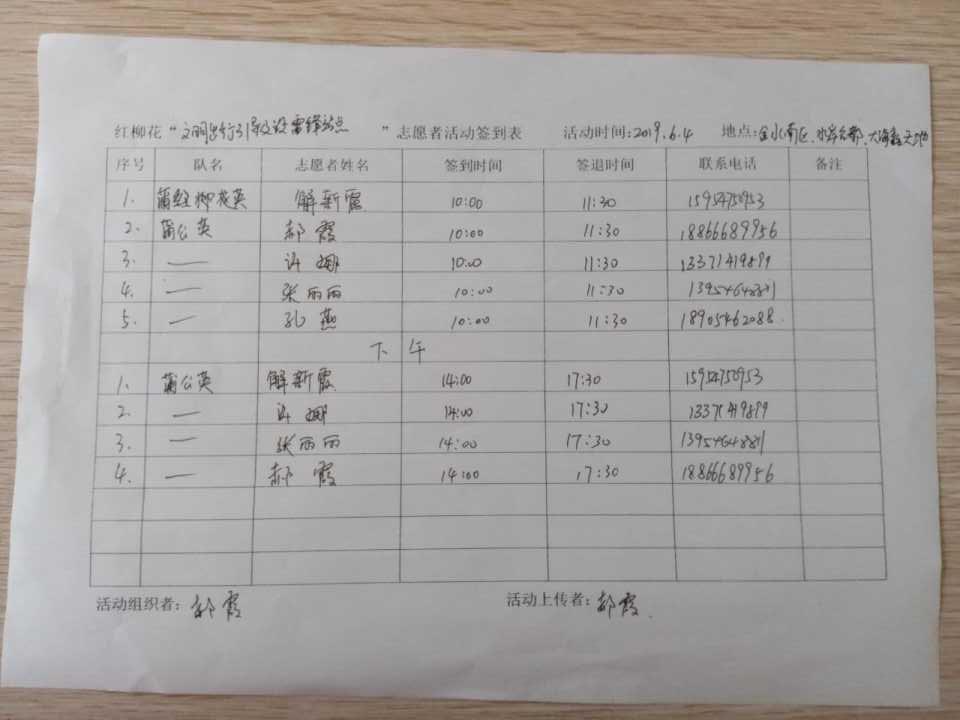 红柳花“文明出行引导及设雷锋站点”志愿者活动签到表 活动时间:2019.6.4 地点:金水南区、水岸名都、大海鑫天地
序号 队名 志愿者姓名 签到时间 签退时间 联系电话 备注
1. 解新霞 10:00 11:30
2. 蒲公英 郝霞 10:00 11:30 18866689956
3. — 许娜 10:00 11:30 13371419899
4. — 张丽丽 10:00 11:30 13954648881
5. — 孔燕 10:00 11:30 18905462088
下午
1. 蒲公英 解新霞 14:00 17:30
2. — 许娜 14:00 17:30 13371419899
3. — 张丽丽 14:00 17:30 13954648881
4. — 郝霞 14:00 17:30 18866689956
活动组织者: 郝霞 活动上传者: 郝霞.